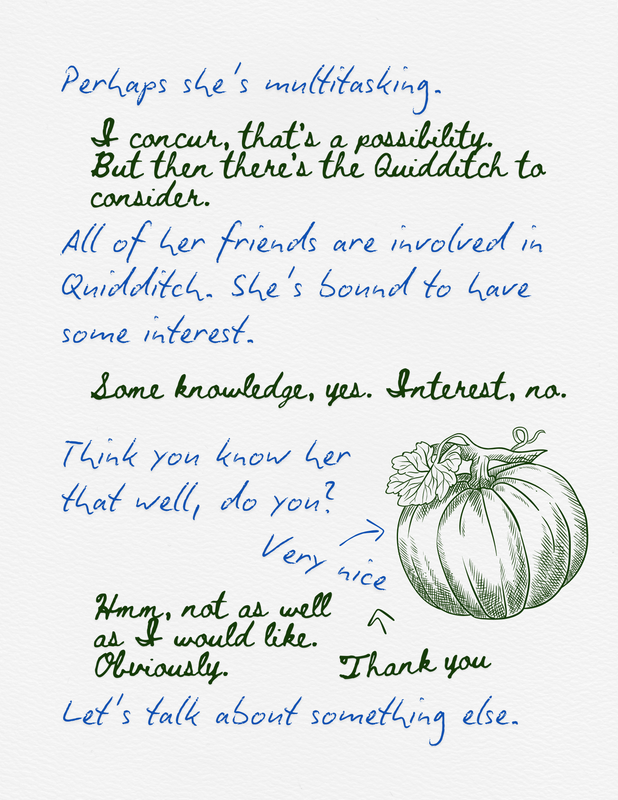 Perhaps she's multitasking.
I concur, that's a possibility.
But then there's the Quidditch to
consider.
All of her friends are involved in
Quidditch. She's bound to have
some interest.
Some knowledge, yes. Interest, no.
Think you know her
that well, do you?
Very nice
Hmm, not as well
as I would like.
Obviously.
Thank you
Let's talk about something else.